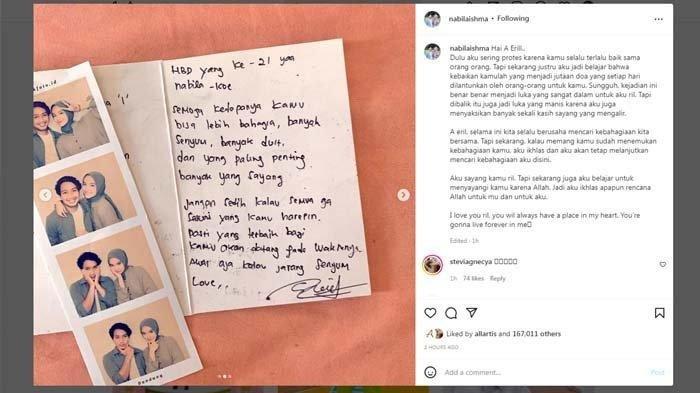 HBD yang ke-21 yaa
nabila-koe
semoga kedepanya kamu
bisa lebih bahagia, banyak
senyum, banyak duit,
dan yang paling penting
banyak yang sayang
jangan sedih kalau semua ga
sesuai yang kamu harepin.
pasti yang terbaik bagi
kamu akan datang pada waktunya
awas aja kalau jarang senyum
Love,,
Bandung
nabilaishma • Following
nabilaishma Hai A Erill..
Dulu aku sering protes karena kamu selalu terlalu baik sama
orang orang. Tapi sekarang justru aku jadi belajar bahwa
kebaikan kamulah yang menjadi jutaan doa yang setiap hari
dilantunkan oleh orang-orang untuk kamu. Sungguh, kejadian ini
benar benar menjadi luka yang sangat dalam untuk aku ril. Tapi
dibalik itu juga jadi luka yang manis karena aku juga
menyaksikan banyak sekali kasih sayang yang mengalir.
A eril, selama ini kita selalu berusaha mencari kebahagiaan kita
bersama. Tapi sekarang, kalau memang kamu sudah menemukan
kebahagiaan kamu, aku ikhlas dan aku akan tetap melanjutkan
mencari kebahagiaan aku disini.
Aku sayang kamu ril. Tapi sekarang juga aku belajar untuk
menyayangi kamu karena Allah. Jadi aku ikhlas apapun rencana
Allah untuk mu dan untuk aku.
I love you ril, you wil always have a place in my heart. You're
gonna live forever in me
Edited · 1h
steviagnecya
1h 74 likes Reply
Liked by allartis and 167,011 others
2 HOURS AGO
Add a comment...
Post